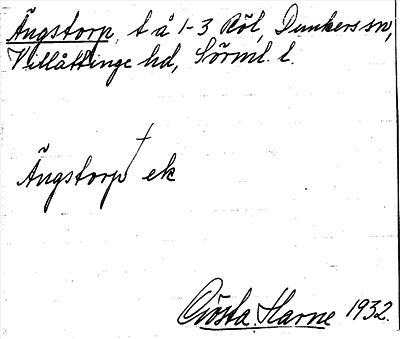 Ängstorp, t å 1-3 Röl, Dunkers sn,
Villåttinge hd, Sörml. l.
Ängstorp † ek
Gösta Harne 1932.